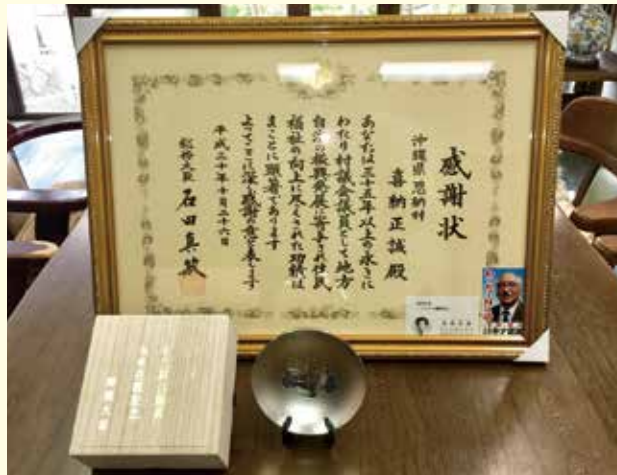 感謝状
沖縄県 恩納村
喜納正誠 殿
あなたは三十五年以上の永きに
わたり村議会議員として地方
自治の振興発展に寄与され住民
福祉の向上に尽くされた功績は
まことに顕著であります
よってここに深く感謝の意を表します
平成三十年十月二十六日
総務大臣 石田真敏
総務大臣